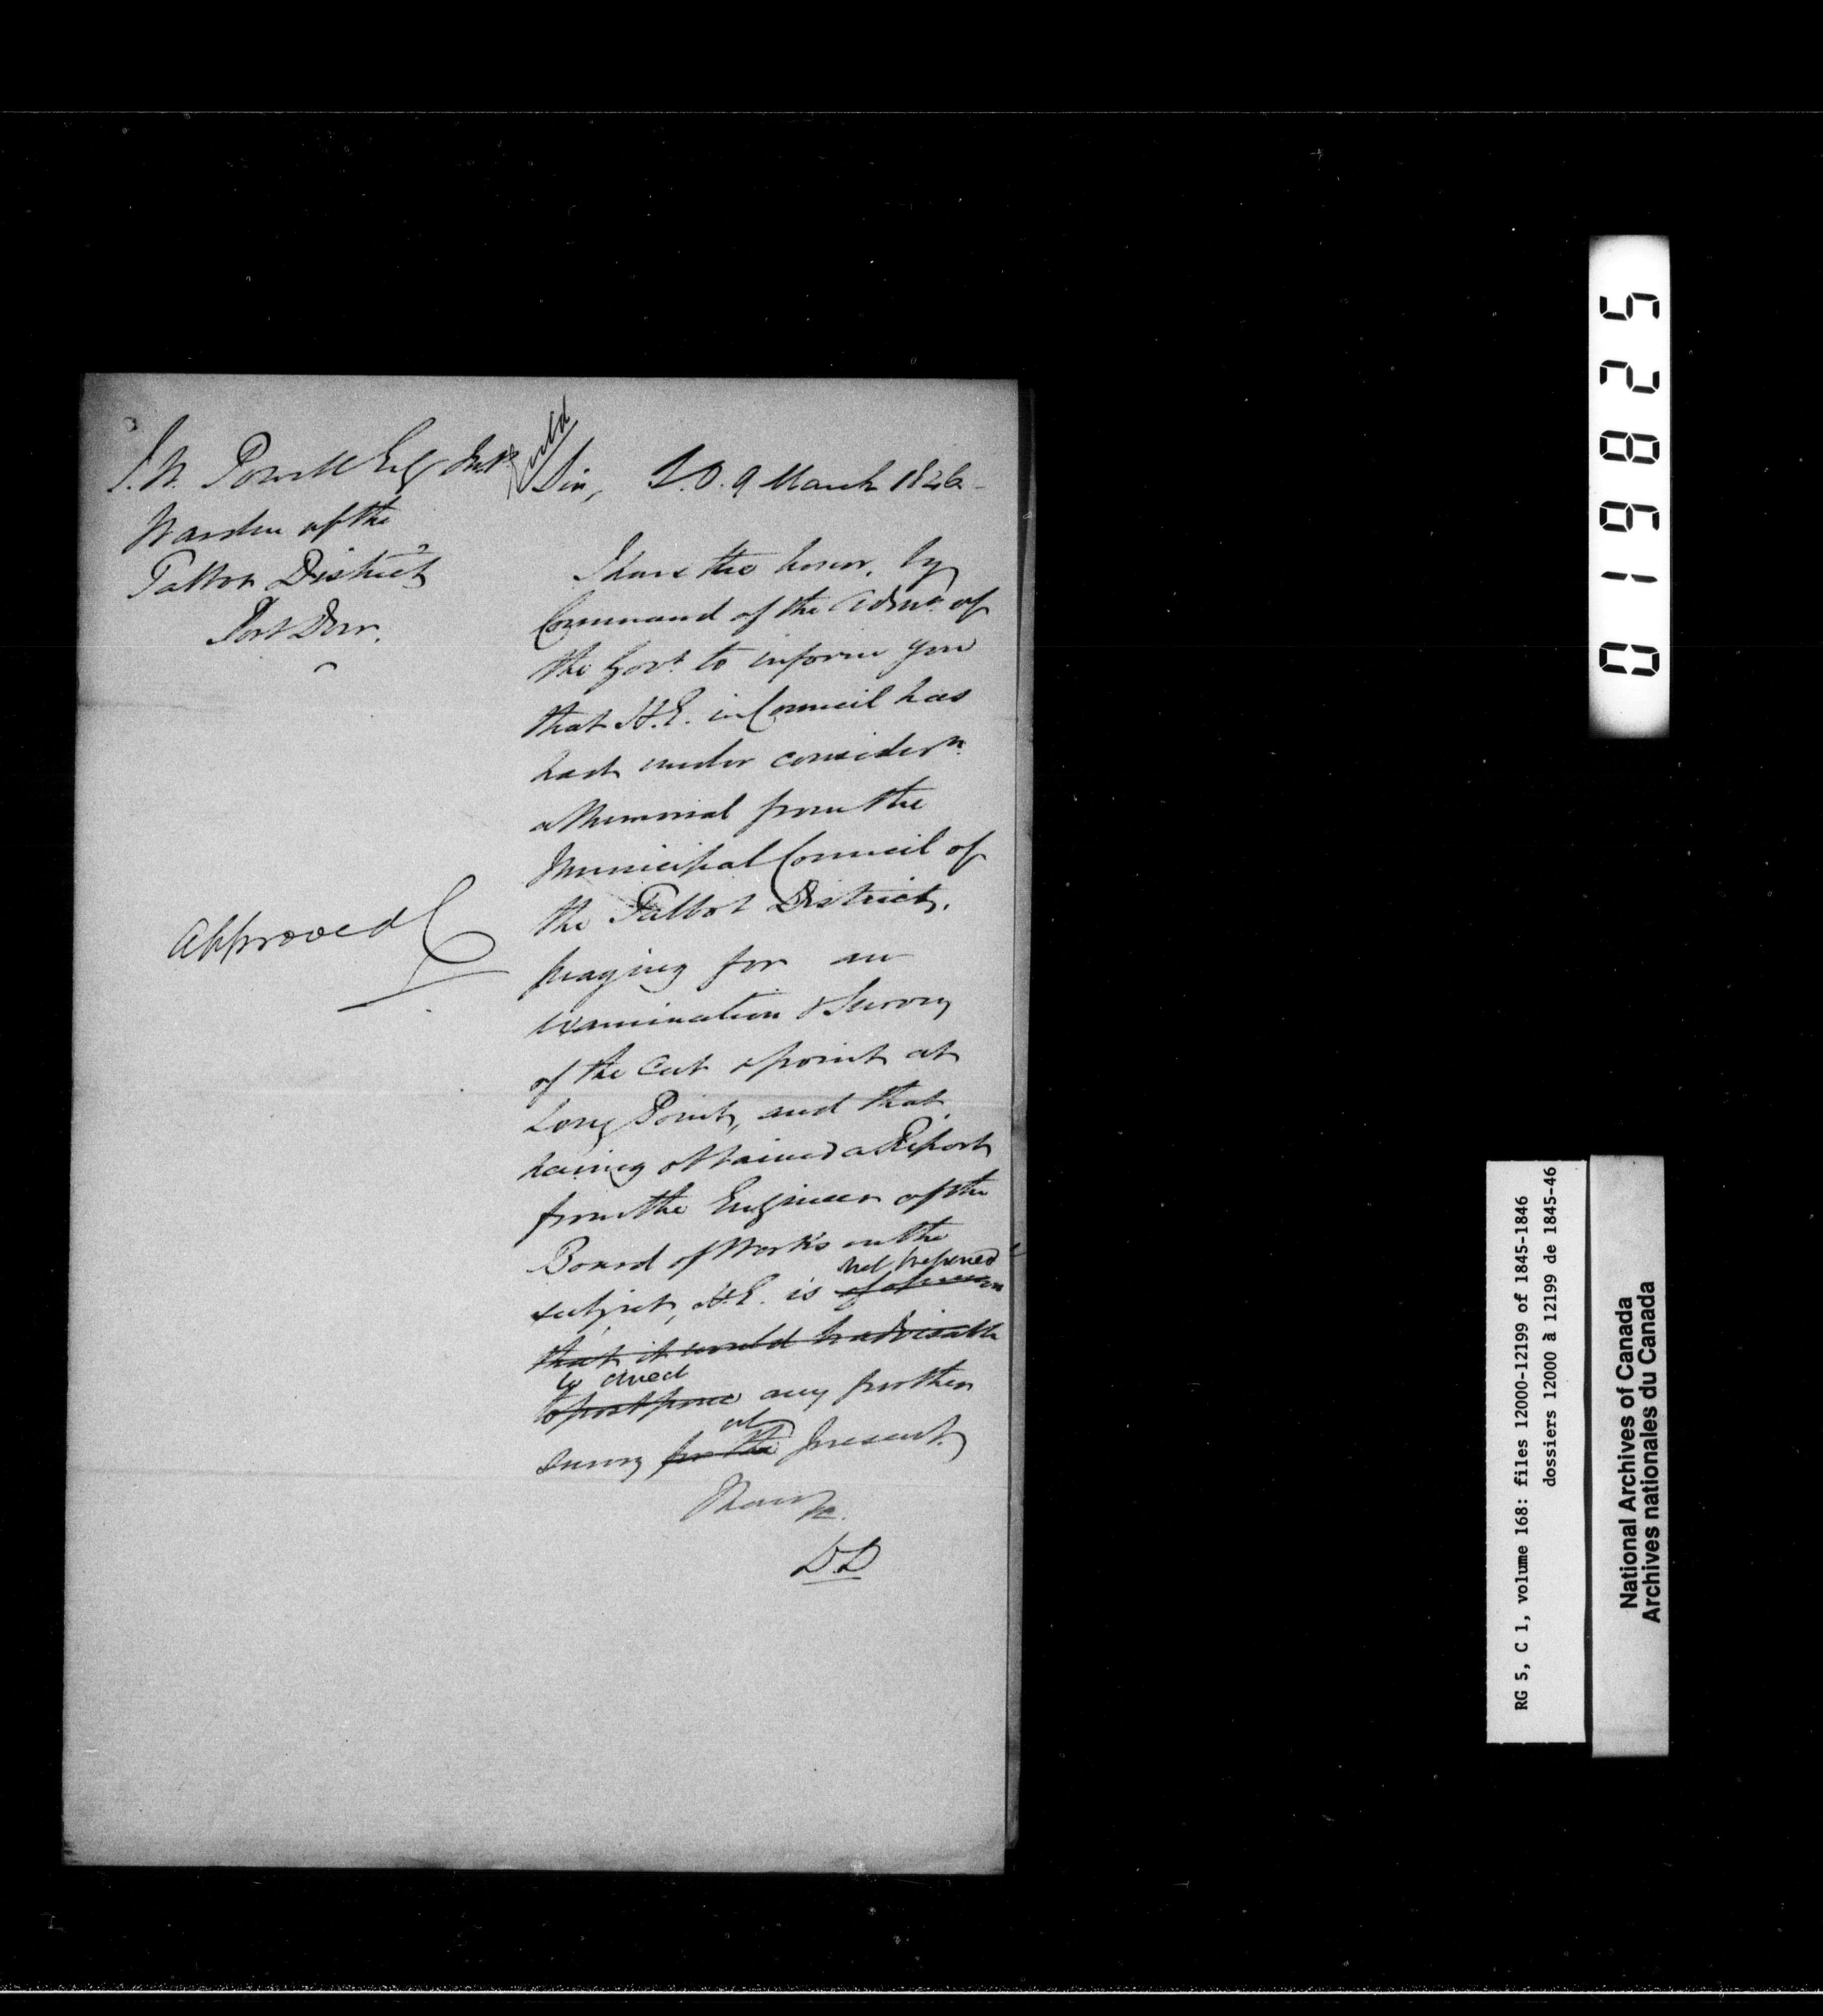 I. W. Powell Esq
Warden of the
Talbot District
Port Dover.
Approved
Sir, S.O. 9 March 1846
I have the honor, by
Command of the Admr. of
the Govt. to inform you
that H.E. in Council has
had under considern.
a Memorial from the
Municipal Council of
the Talbot District,
praying for an
examination & Survey
of the Cut & point at
Long Point, and that
having obtained a Report
from the Engineer of the
Board of Works on the
not prepared
subject, H.E. is of opinion
that it would be advisable
to direct
to postpone any further
at
survey for the present.
I have &c.
D.D
0191825
RG 5, C 1, volume 168: files 12000-12199 of 1845-1846
dossiers 12000 à 12199 de 1845-46
National Archives of Canada
Archives nationales du Canada